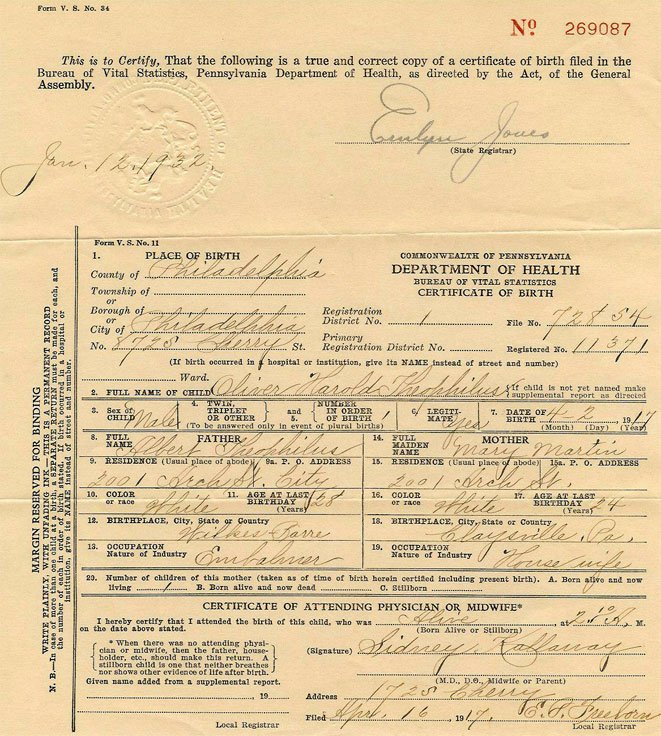 Form V. S. No. 34
No 269087
This is to Certify, That the following is a true and correct copy of a certificate of birth filed in the
Bureau of Vital Statistics, Pennsylvania Department of Health, as directed by the Act, of the General
Assembly.
Emlyn Jones
(State Registrar)
Jan. 12, 1932.
Form V. S. No. 11
1. PLACE OF BIRTH
County of Philadelphia
Township of
or
Borough of
or
City of Philadelphia
No. 1725 Cherry St.
COMMONWEALTH OF PENNSYLVANIA
DEPARTMENT OF HEALTH
BUREAU OF VITAL STATISTICS
CERTIFICATE OF BIRTH
Registration District No. 1 File No. 72854
Primary Registration District No. Registered No. 11371
(If birth occurred in a hospital or institution, give its NAME instead of street and number)
Ward.
2. FULL NAME OF CHILD Oliver Harold Theophilus { If child is not yet named make supplemental report as directed
3. Sex of CHILD Male 4. TWIN, TRIPLET OR OTHER and 5. NUMBER IN ORDER OF BIRTH 1 6. LEGITIMATE? Yes 7. DATE OF BIRTH 4-2 1917
(To be answered only in event of plural births) (Month) (Day) (Year)
8. FULL NAME FATHER Albert Theophilus
9. RESIDENCE (Usual place of abode) 9a. P. O. ADDRESS
2001 Arch St. City
10. COLOR or race White 11. AGE AT LAST BIRTHDAY 28 (Years)
12. BIRTHPLACE, City, State or Country
Wilkes-Barre
13. OCCUPATION Nature of Industry Embalmer
14. FULL MAIDEN NAME MOTHER Mary Martin
15. RESIDENCE (Usual place of abode) 15a. P. O. ADDRESS
2001 Arch St.
16. COLOR or race White 17. AGE AT LAST BIRTHDAY 24 (Years)
18. BIRTHPLACE, City, State or Country
Claysville, Pa.
19. OCCUPATION Nature of Industry Housewife
20. Number of children of this mother (taken as of time of birth herein certified including present birth). A. Born alive and now
living 1 B. Born alive and now dead C. Stillborn
CERTIFICATE OF ATTENDING PHYSICIAN OR MIDWIFE*
I hereby certify that I attended the birth of this child, who was Alive at 2 10 A. M.
on the date above stated. (Born Alive or Stillborn)
{ * When there was no attending physician or midwife, then the father, householder, etc., should make this return. A stillborn child is one that neither breathes nor shows other evidence of life after birth. }
(Signature) Sidney
(M.D., D.O., Midwife or Parent)
Given name added from a supplemental report.
, 19
Local Registrar
Address 1725 Cherry
Filed Apr. 16 1917.
Local Registrar
MARGIN RESERVED FOR BINDING
WRITE PLAINLY, WITH UNFADING INK—THIS IS A PERMANENT RECORD
N. B.—In case of more than one child at a birth, a SEPARATE RETURN must be made for each, and
the number of each in order of birth stated. If birth occurred in a hospital or
institution, give its NAME instead of street and number.